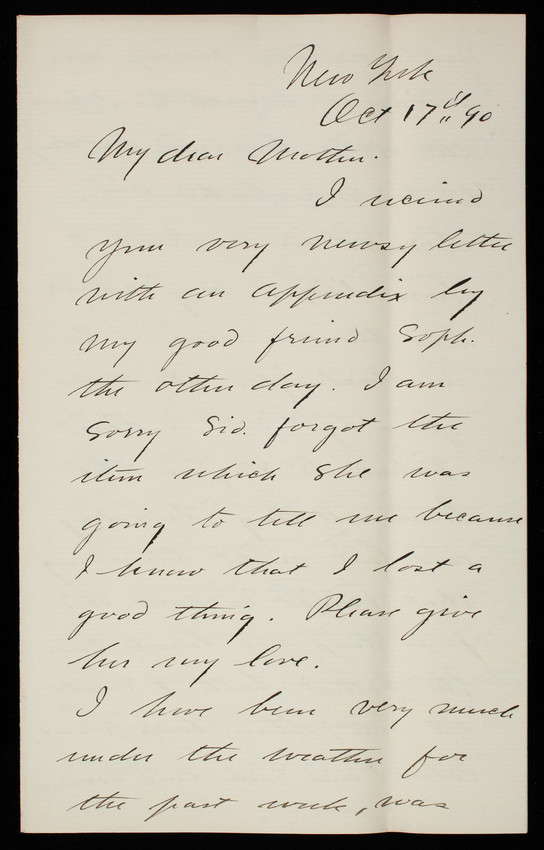 New York
Oct 17th 90
My dear Mother.
I received
your very newsy letter
with an appendix by
my good friend Soph.
the other day. I am
sorry Sid. forgot the
item which she was
going to tell me because
I know that I lost a
good thing. Please give
her my love.
I have been very much
under the weather for
the past week, was